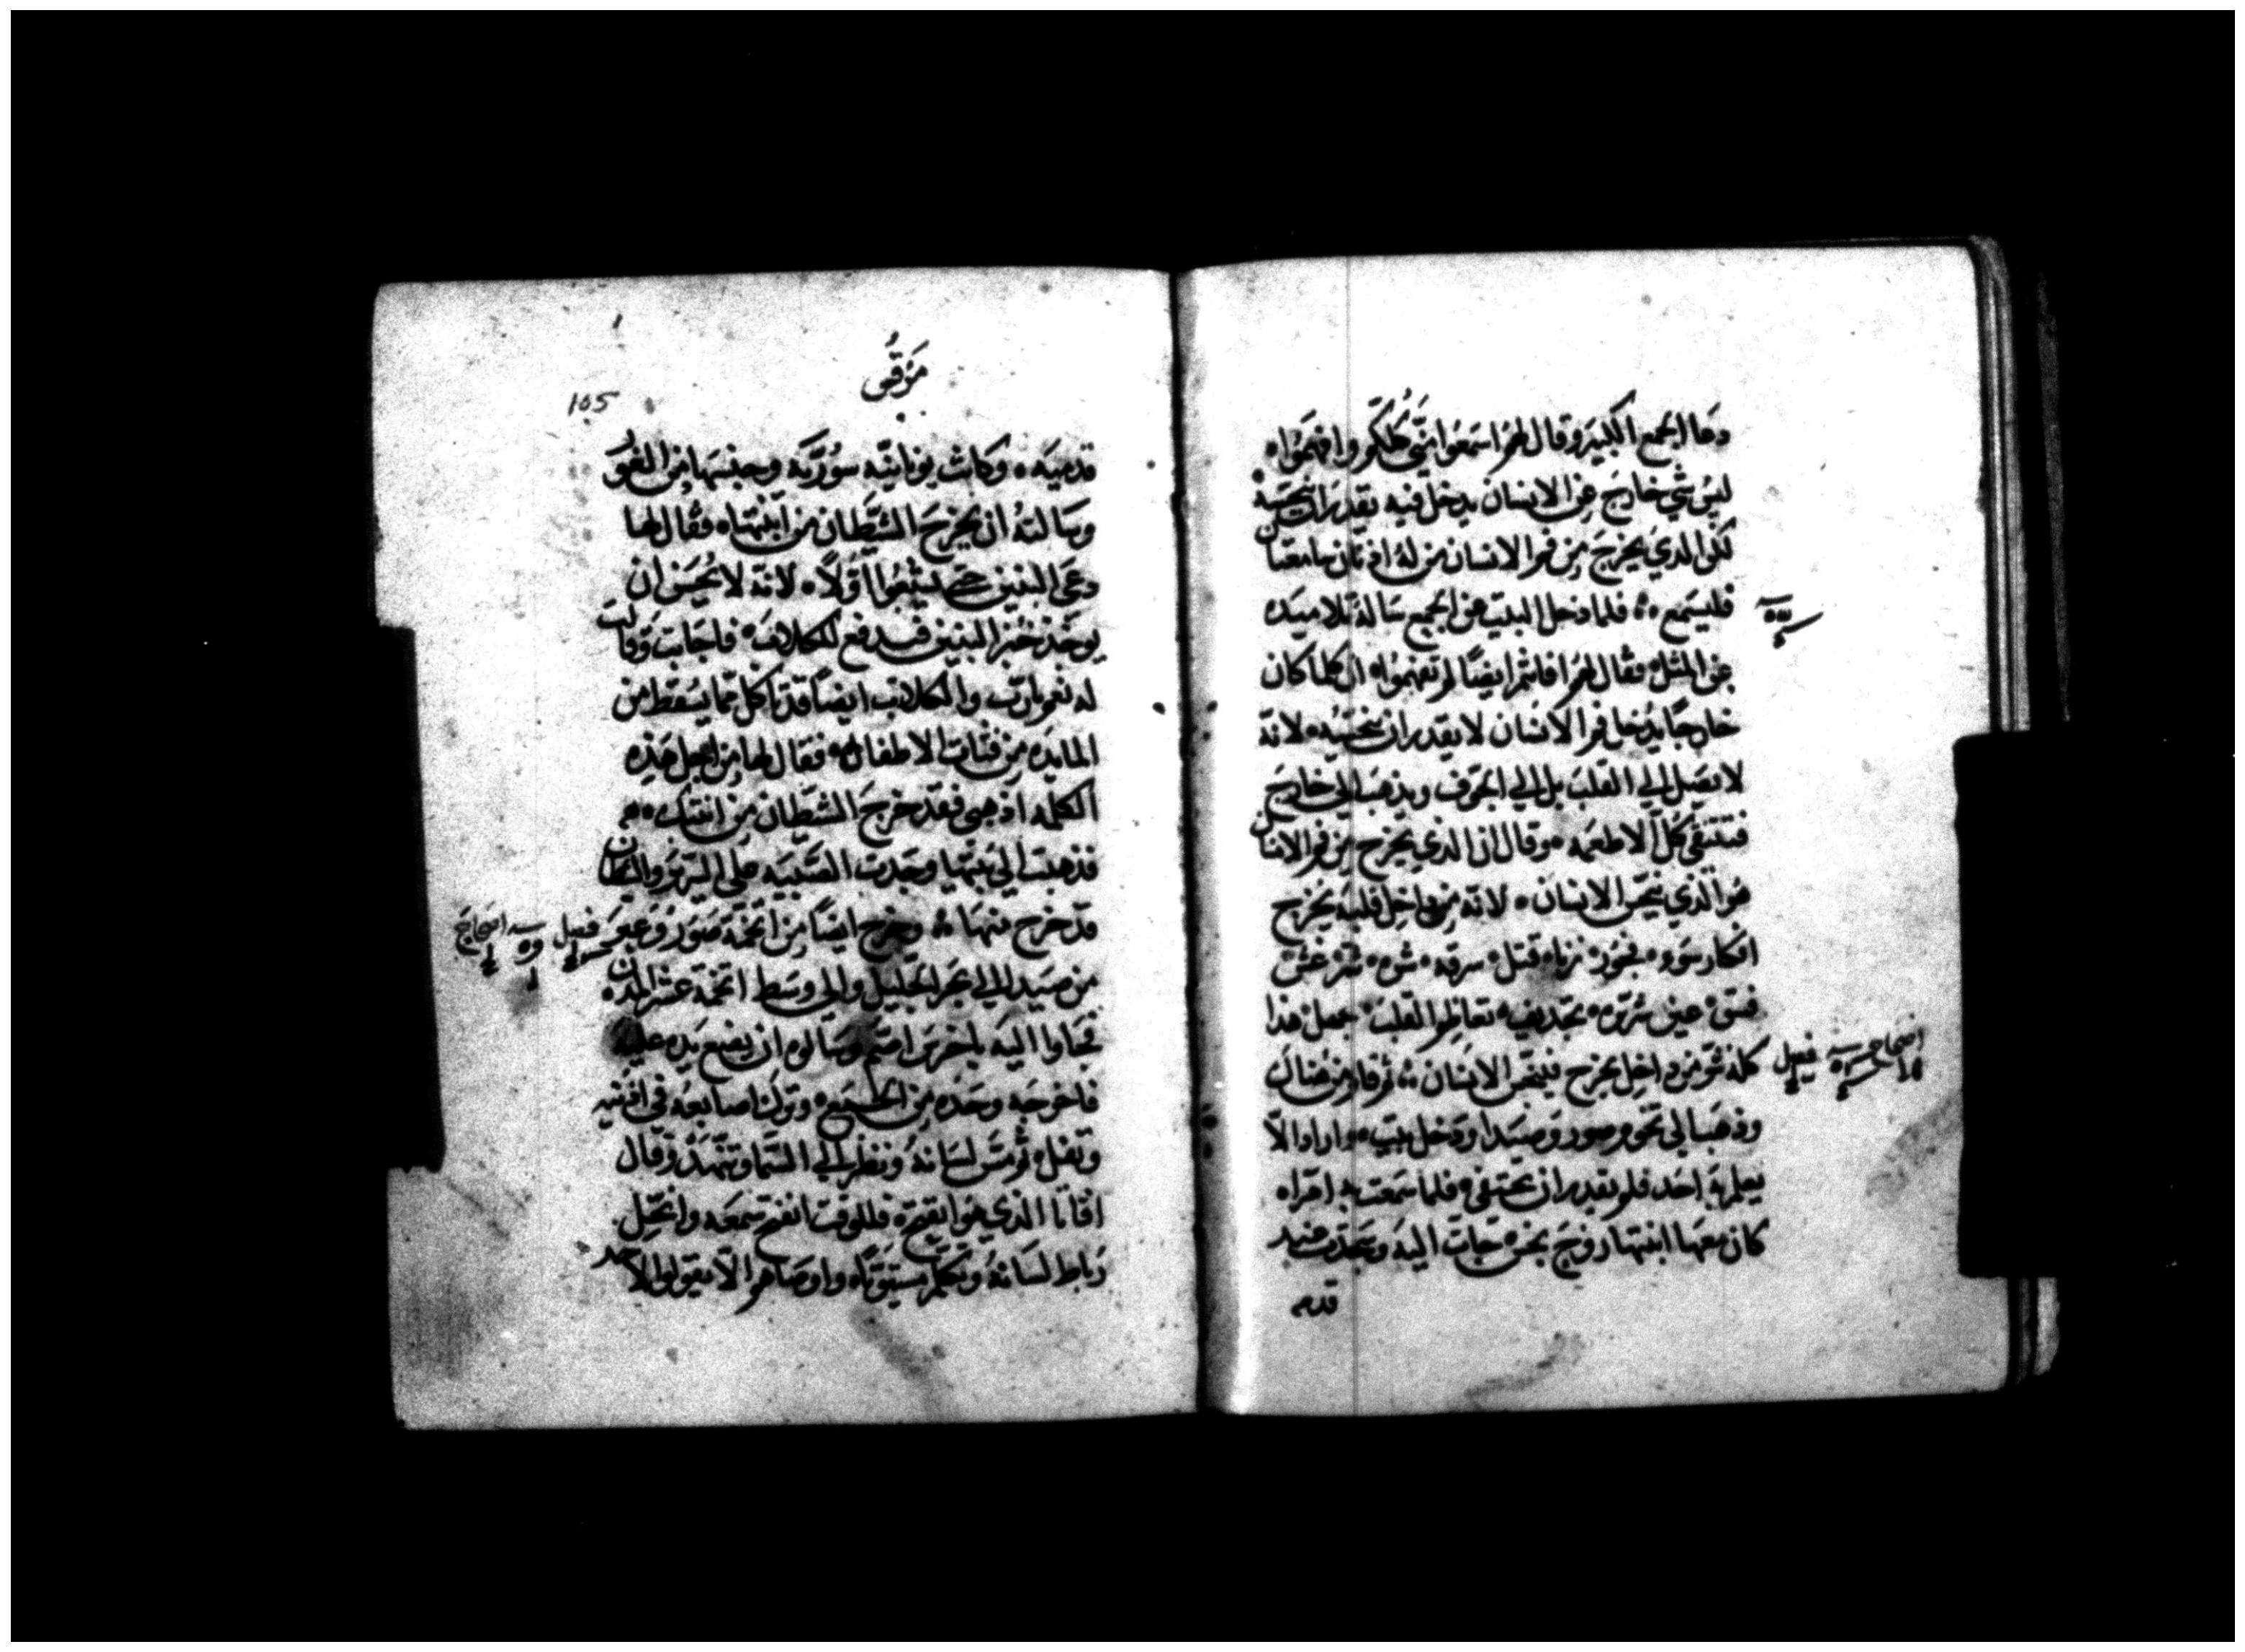 ودعا الجمع الكبير وقال لهم اسمعوا منّي كُلكم وافهموا ه
ليس شي خارج عن الانسان يدخل فيه يقدر ان ينجسه
لكن الدي يخرج من فم الانسان من له اذنان سامعتان
فليسمع ؞ فلما دخل البيت من الجمع ساله تلاميده
عن المثل فقال لهم افانتم ايضًا لم تفهموا ان كلما كان
خارجًا يدخل فم الانسان لا يقدر ان ينجسه لانه
لا يصل الي القلب بل الي الجوف ويذهب الي خارج
فتنقى كل الاطعمه وقال ان الذي يخرج من فم الانسان
هو الذي ينجس الانسان لانه من داخل قلبه يخرج
افكار سوء فجور زنا قتل سرقه شره شر غش
فسق عين شريره تجديف تعاظم القلب جهل هذا
كله شر من داخل يخرج فينجس الانسان ؞ ثم قام من هناك
وذهب الي تخوم صور وصيدا ودخل بيت واراد الا
يعلم به احد فلم يقدر ان يختفي فلما سمعت به امراه
كان معها ابنتها روح نجس جات اليه وسجدت عند
قدميه
اصحاح فصل
مرقس
105
قدميه وكانت يونانيّه سوريّه وجنسها من الغور
وسالته ان يخرج الشيطان من ابنتها ه فقال لها
دعي البنين حتي يشبعوا اوّلاً ه لانه لا يحسن ان
يوخذ خبز البنين فيدفع للكلاب فاجابت وقالت
له نعم يا رب والكلاب ايضًا قد تاكل مما يسقط من
المايده من فتات الاطفال فقال لها من اجل هذه
الكلمه اذهبي فقد خرج الشيطان من ابنتك
فذهبت الي بيتها وجدت الصبيه علي السرير والشيطان
قد خرج منها ؞ وخرج ايضًا من تخمة صور وعبر
من صيدا الي بحر الجليل والي وسط اتخمة عشر المدن
فجاوا اليه باخرس اصم وسالوه ان يضع يده عليه
فاخرجه وحده من الجميع وترك اصابعه في اذنيه
وتفل ثم مس لسانه ونظر الي السما وتنهد وقال
افاثا الذي هو انفتح فللوقت انفتح سمعه وانحل
رباط لسانه وتكلم مستويًا ه واوصاهم الا يقولوا لاحد
فصل اصحاح